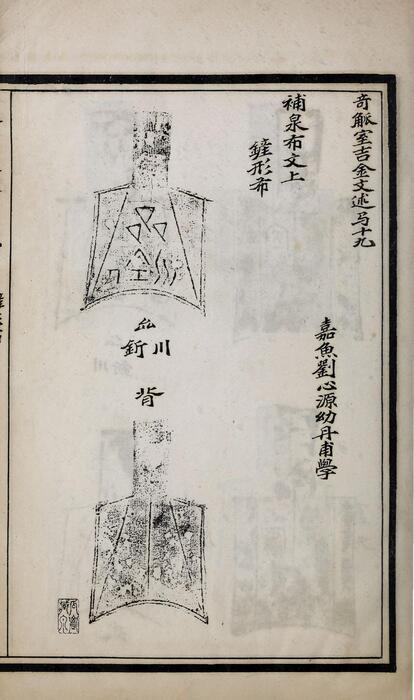 奇觚室吉金文述弓十九
嘉魚劉心源幼丹甫學
補泉布文上
鏟形布
川
釿
背